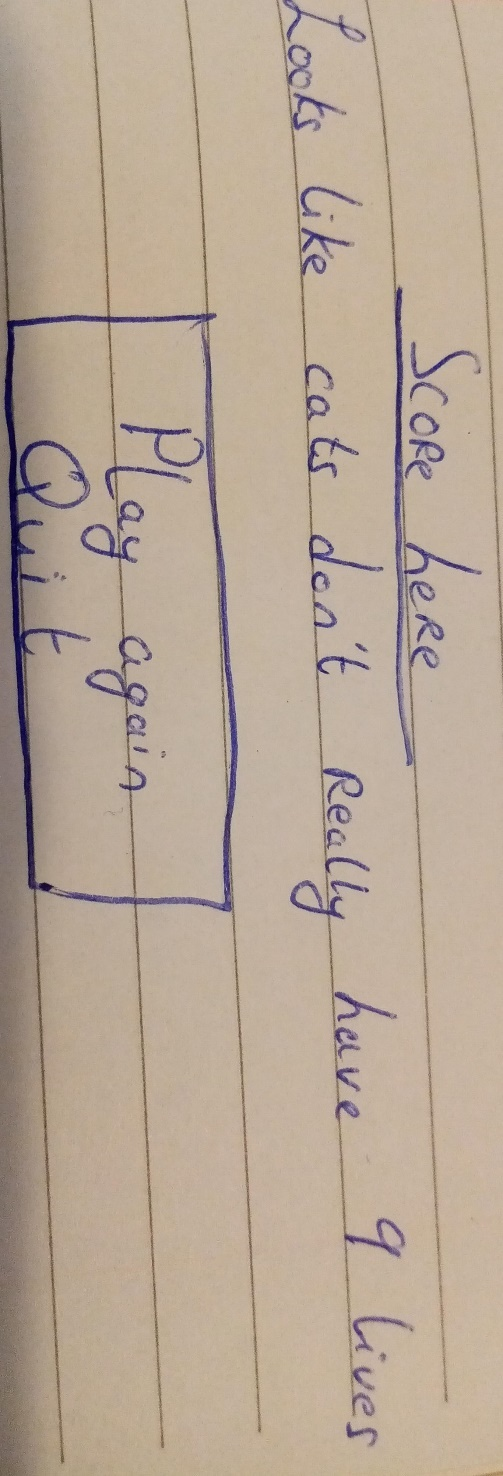 Score here
Looks like cats don't really have 9 lives
Play again
Quit